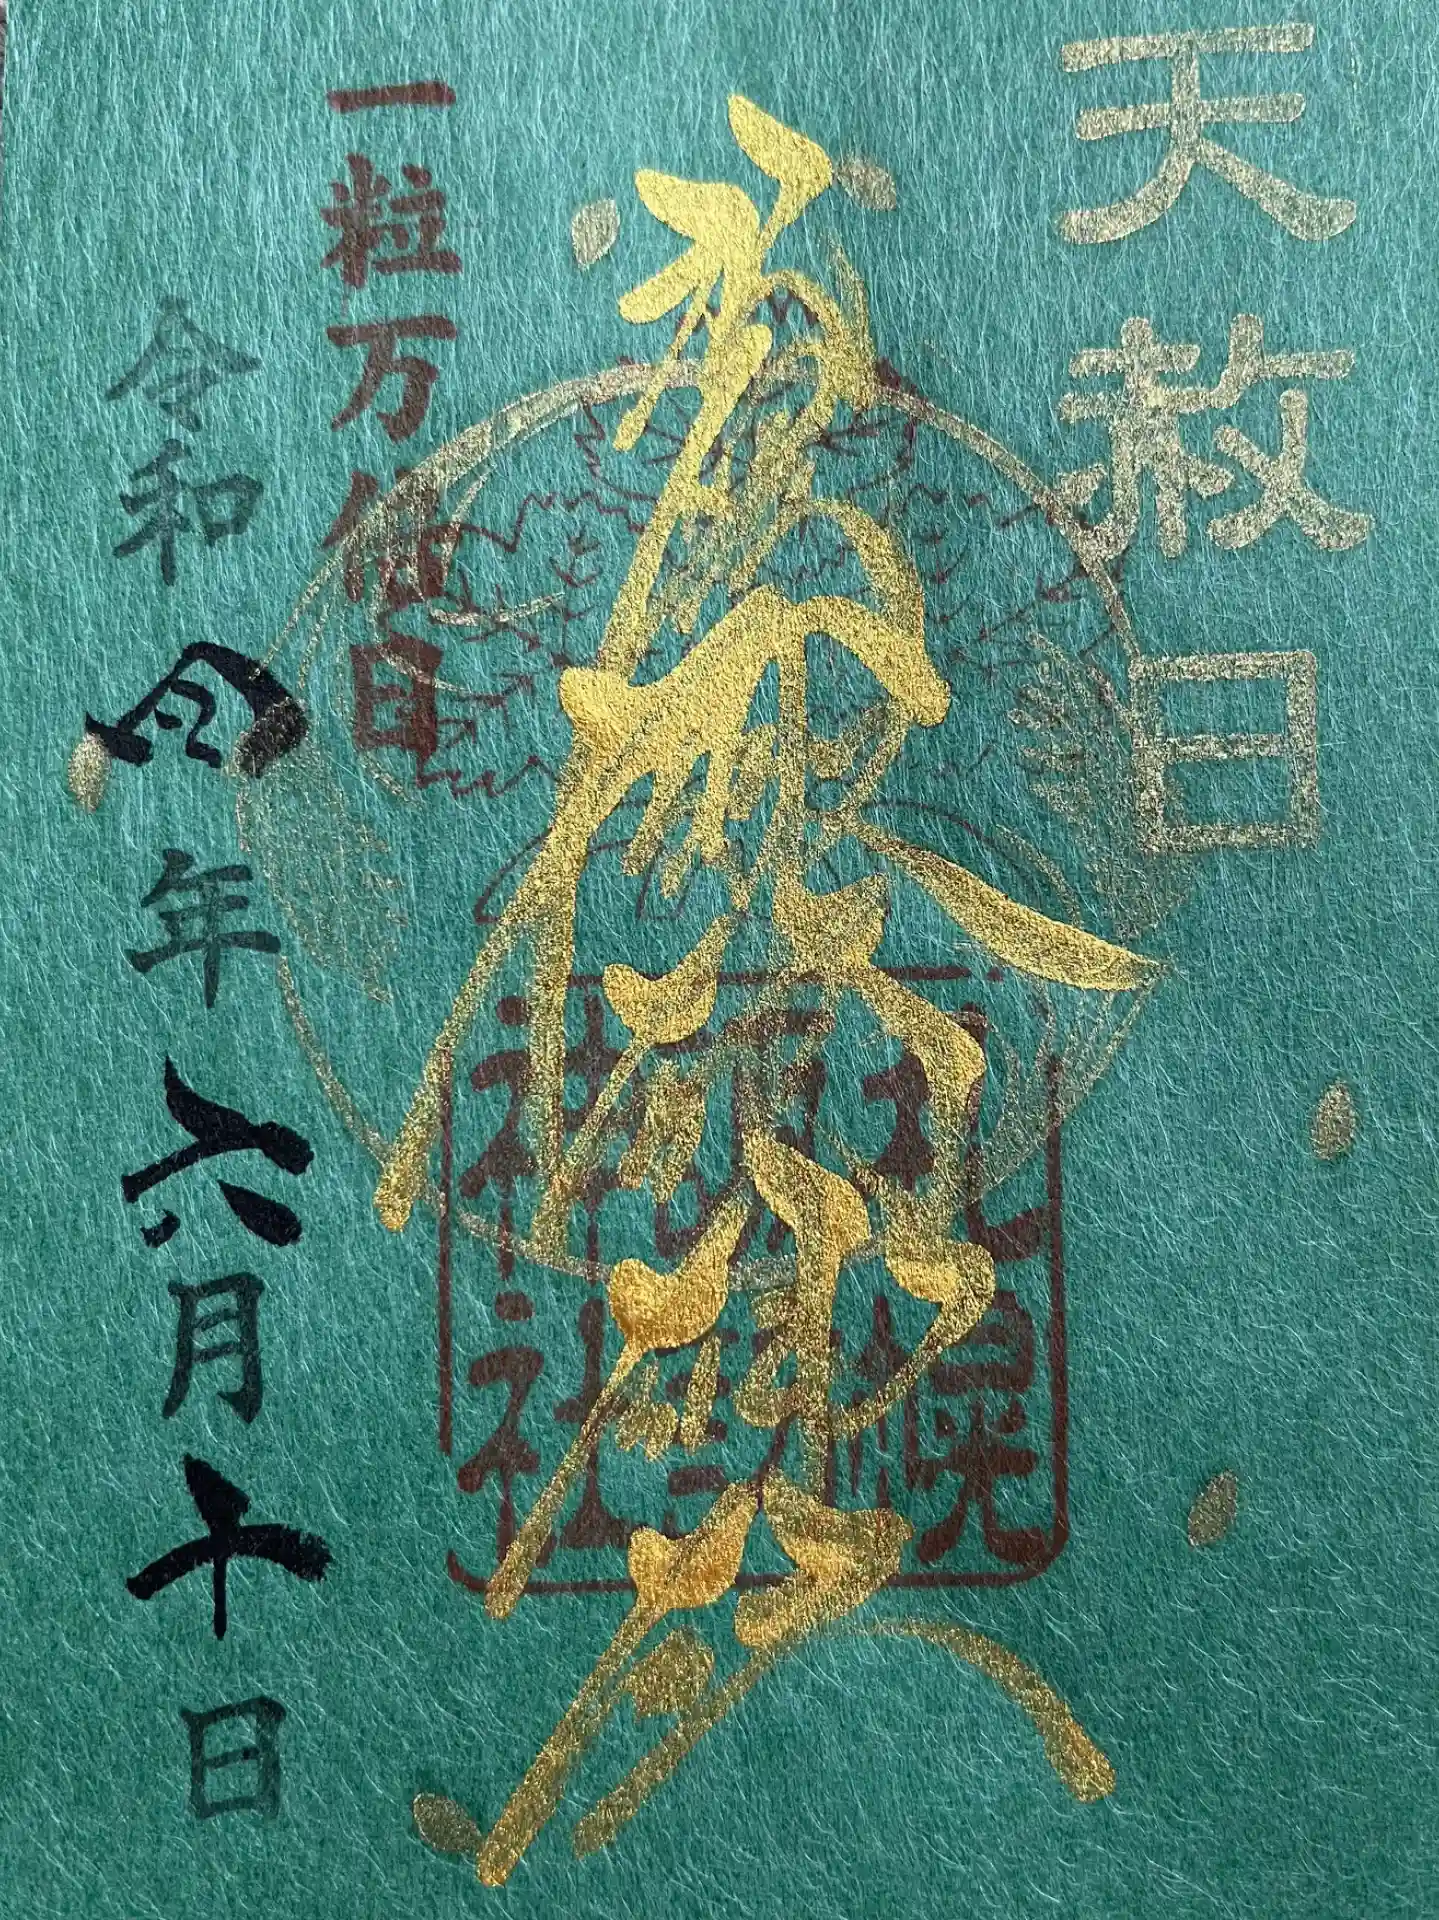 天赦日
札幌
諏訪
神社
一粒万倍日
令和四年六月十日